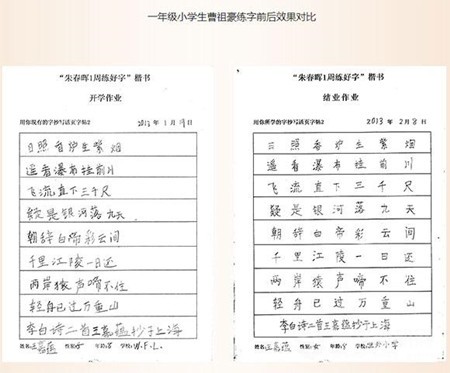 一年级小学生曹祖豪练字前后效果对比
“朱春晖1周练好字”楷书
开学作业
用你现有的字抄写活页字帖2
日照香炉生紫烟
遥看瀑布挂前川
飞流直下三千尺
疑是银河落九天
朝辞白帝彩云间
千里江陵一日还
两岸猿声啼不住
轻舟已过万重山
李白诗二首王嘉蕴抄于上海
姓名 性别 女 年龄 学校 W.F.L.
“朱春晖1周练好字”楷书
结业作业
用你所学的字抄写活页字帖2
2013 年 2 月 8 日
日照香炉生紫烟
遥看瀑布挂前川
飞流直下三千尺
疑是银河落九天
朝辞白帝彩云间
千里江陵一日还
两岸猿声啼不住
轻舟已过万重山
李白诗二首王嘉蕴抄于上海
姓名 性别 女 年龄 学校 小学